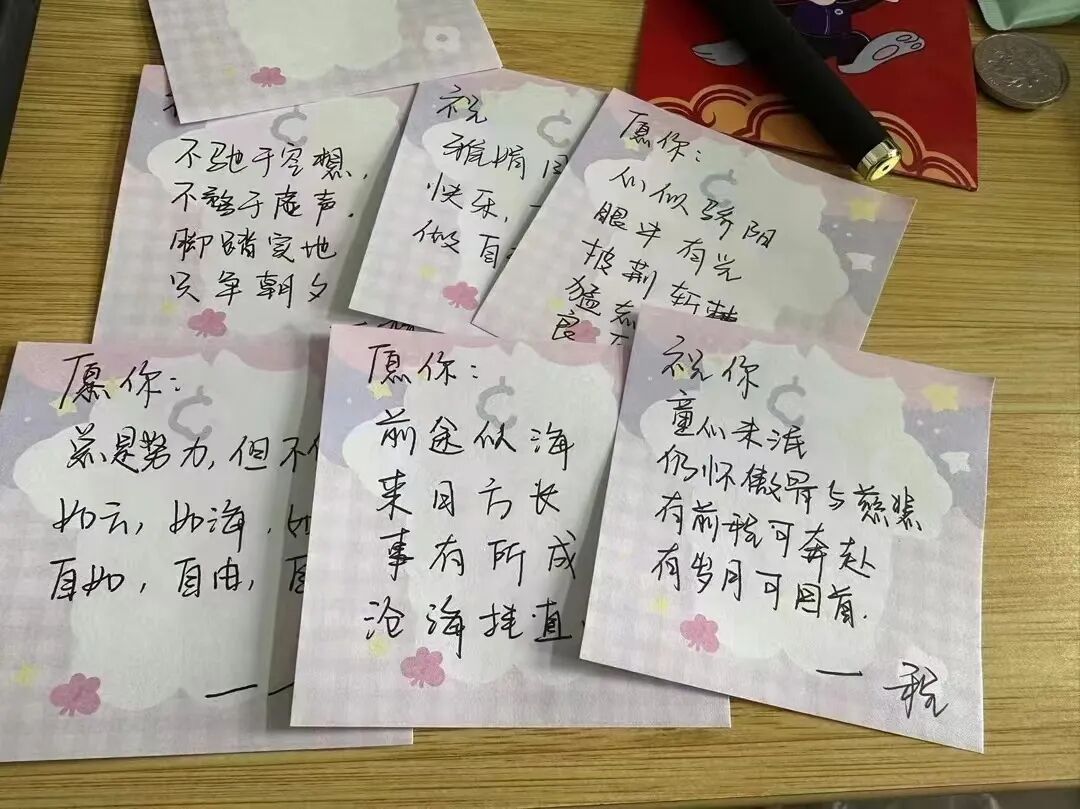 不驰于空想，
不骛于虚声．
脚踏实地
只争朝夕
祝
快乐，一
做自
愿你：
们似骄阳
眼中有光
披荆斩棘
猛志
良
愿你：
总是努力，但不
如云，如海，如
自如，自由，自
——
愿你：
前途似海
来日方长
事有所成
沧海挂直．
祝你
童心未泯
仍怀傲骨与慈悲
有前程可奔赴
有岁月可回首．
— 程